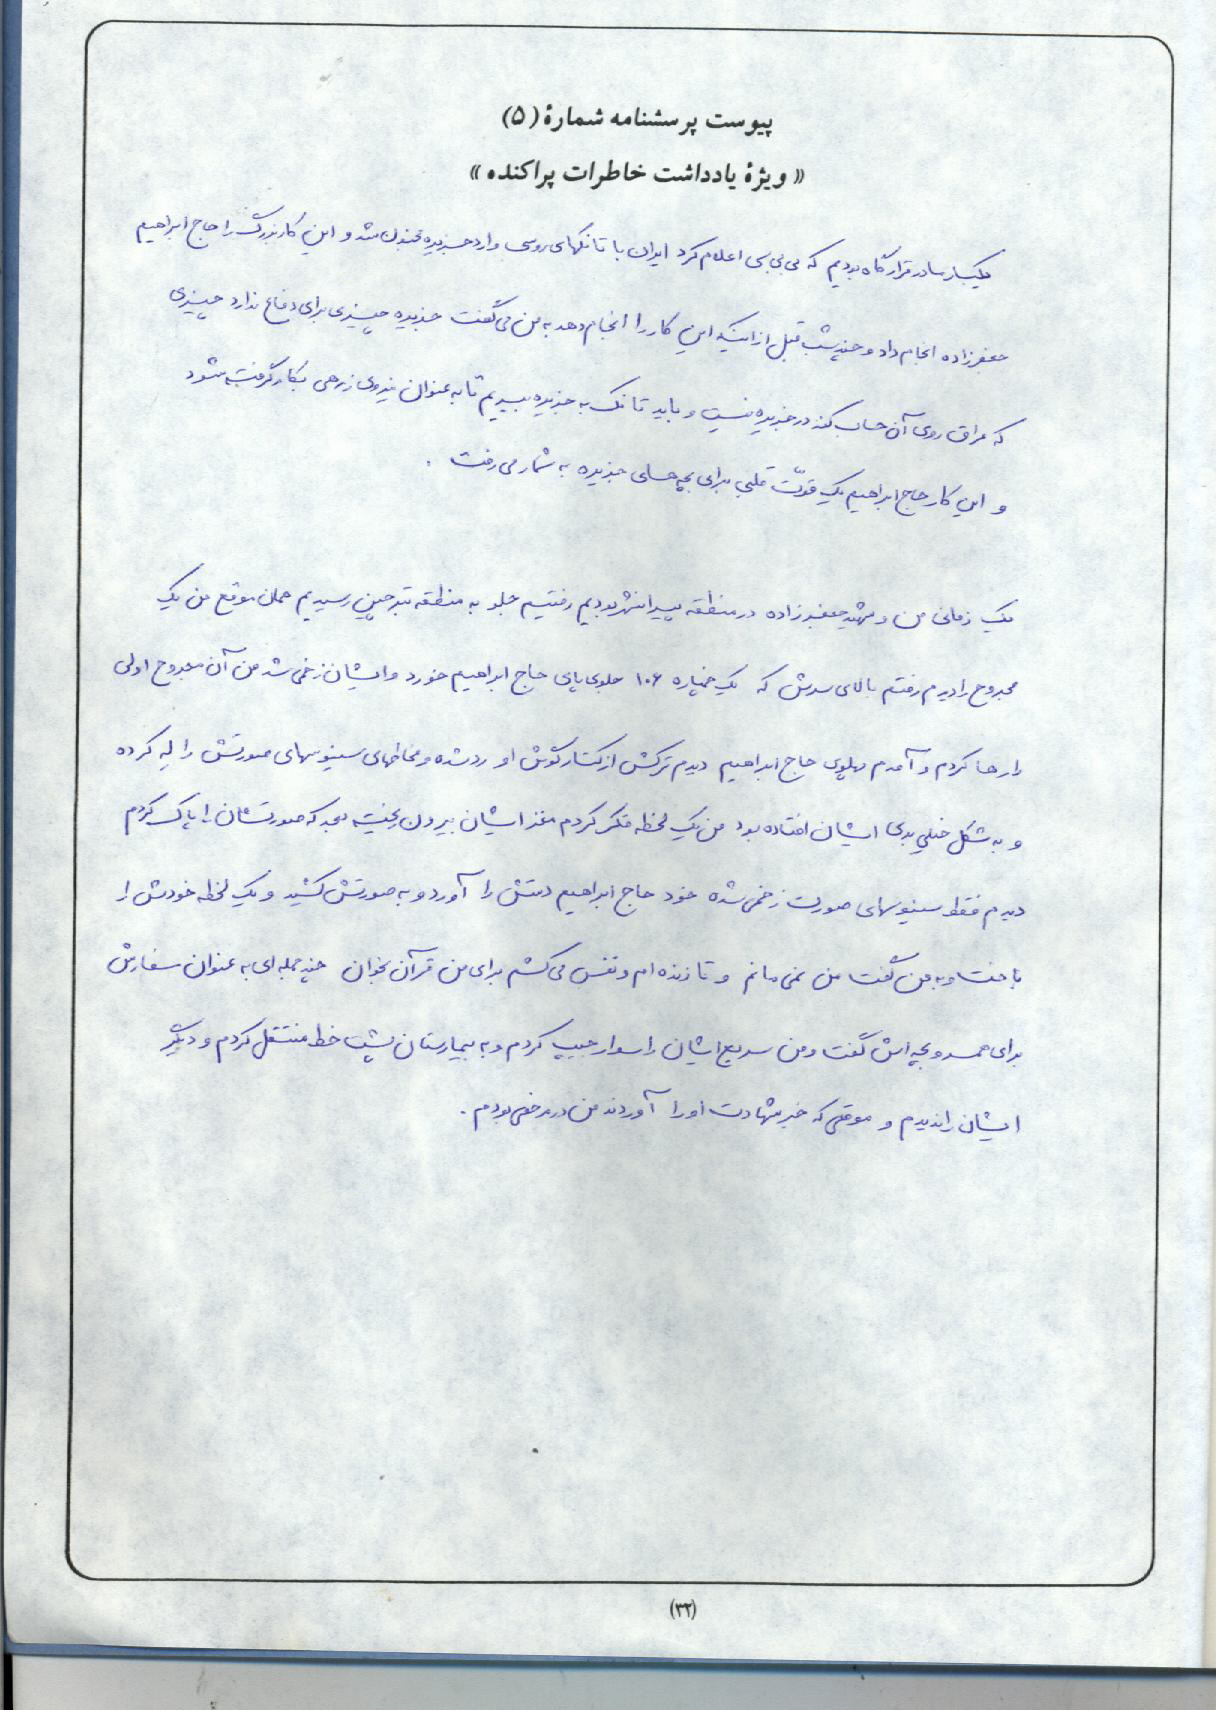 پیوست پرسشنامه شمارهٔ (۵)
« ویژهٔ یادداشت خاطرات پراکنده »
یکبار ما در قرارگاه بودیم که بی بی سی اعلام کرد ایران با تانکهای روسی وارد جزیره مجنون شد و این کار بزرگ را حاج ابراهیم
جعفرزاده انجام داد و چند شب قبل از اینکه این کار را انجام دهد به من می گفت جزیره چیزی برای دفاع ندارد چیزی
که عراق روی آن حساب کند در جزیره نیست و باید تانک به جزیره ببریم تا به عنوان نیروی زرهی بکار گرفته شود
و این کار حاج ابراهیم یک قوّت قلبی برای بچه های جزیره به شمار می رفت .
یک زمانی من و شهید جعفرزاده در منطقه پیرانشهر بودیم رفتیم جلو به منطقه تمرچین رسیدیم همان موقع من یک
مجروح را دیدم رفتم بالای سرش که یک خمپاره ۱۰۶ جلوی پای حاج ابراهیم خورد و ایشان زخمی شد من آن مجروح اولی
را رها کردم و آمدم پهلوی حاج ابراهیم دیدم ترکش از کنار گوش او رد شده و مخاطهای سینوسهای صورتش را له کرده
و به شکل خیلی بدی ایشان افتاده بود من یک لحظه فکر کردم مغز ایشان بیرون ریخته بعد که صورتشان را پاک کردم
دیدم فقط سینوسهای صورت زخمی شده خود حاج ابراهیم دستش را آورد و به صورتش کشید و یک لحظه خودش را
باخت و به من گفت من نمی مانم و تا زنده ام و نفس می کشم برای من قرآن بخوان چند جمله ای به عنوان سفارش
برای همسر و بچه اش گفت و من سریع ایشان را سوار جیپ کردم و به بیمارستان پشت خط منتقل کردم و دیگر
ایشان را ندیدم و موقعی که خبر شهادت او را آوردند من در مرخصی بودم .
(۳۲)